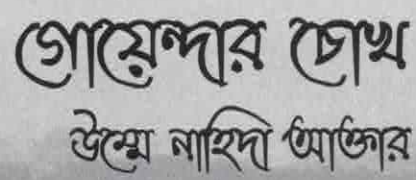 গোয়েন্দার চোখ
উম্মে নাহিদা আক্তার